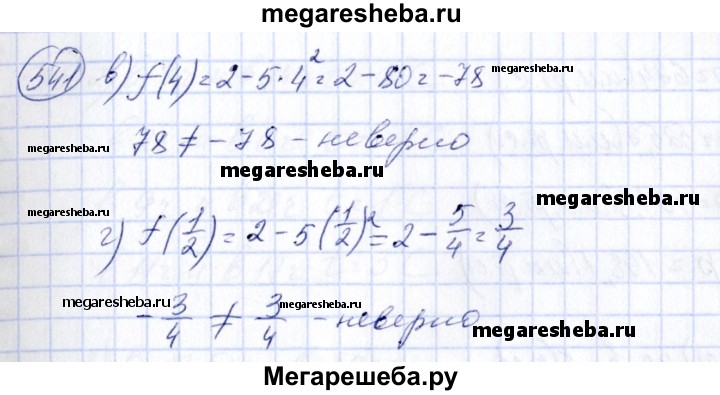 megaresheba.ru
541 в) f(4) = 2 - 5 · 4² = 2 - 80 = -78 megaresheba.ru
megaresheba.ru 78 ≠ -78 - неверно
megaresheba.ru megaresheba.ru
megaresheba.ru
г) f(1/2) = 2 - 5(1/2)² = 2 - 5/4 = 3/4
megaresheba.ru megaresheba.ru
-3/4 ≠ 3/4 - неверно megaresheba.ru
Мегарешеба.ру